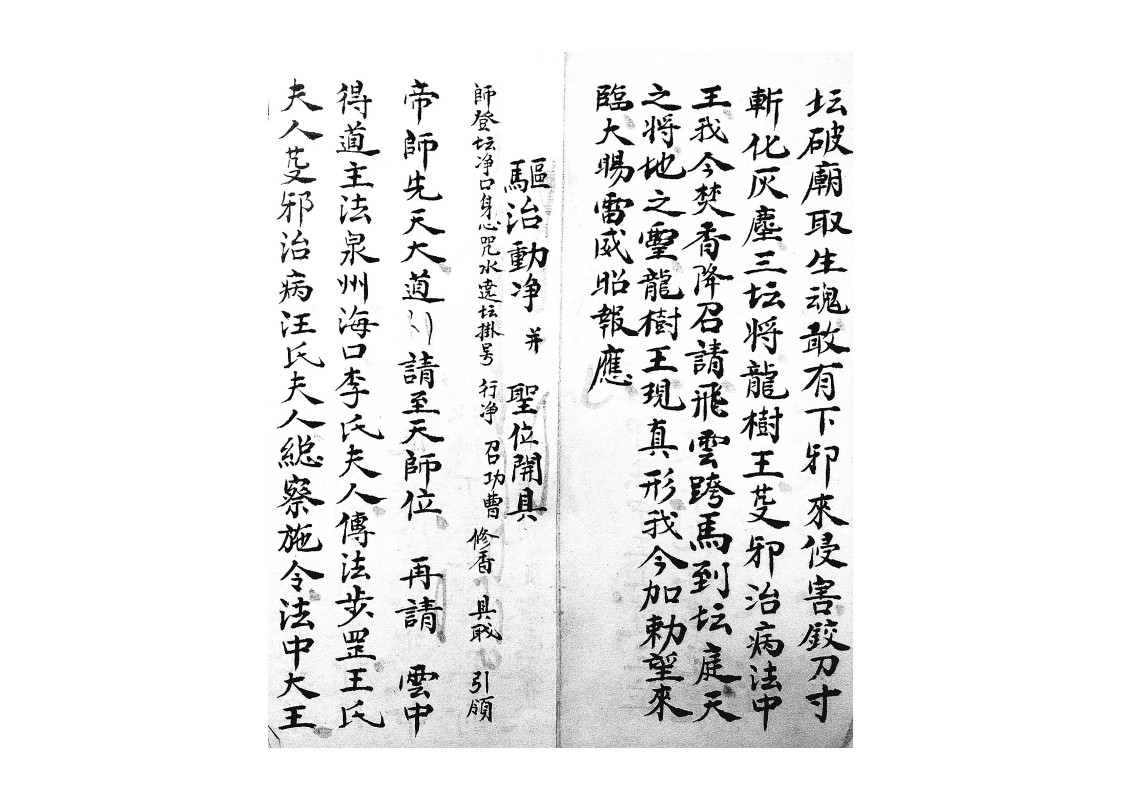 坛破廟取生魂敢有下邪來侵害鉸刀寸
斬化灰塵三坛将龍樹王芟邪治病法中
王我今焚香降召請飛雲跨馬到坛庭天
之将地之靈龍樹王現真形我今加勅望來
臨大賜雷威昭報應
驅治動净 并 聖位開具
師登坛净口身心咒水遶坛掛号 行净 召功曹 修香 具職 引願
帝師先天大道 請至天師位 再請 雲中
得道主法泉州海口李氏夫人傳法步罡王氏
夫人芟邪治病汪氏夫人総察施令法中大王